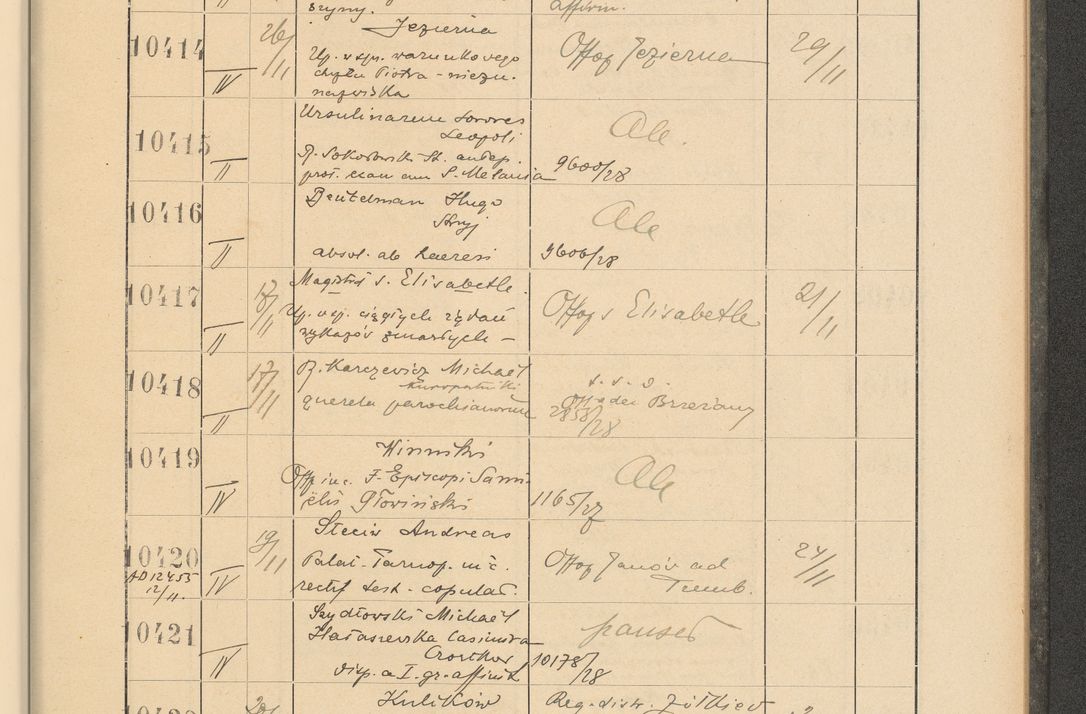 szyny.
affirm.
10414
IV
26/11
Jezierna
Up. v sp. warunkowego
chrztu Piotra - niezn.
nazwiska
Offog Jezierna
29/11
10415
II
Ursulinarum Sorores
Leopoli
St.
prof. exam cum S. Melania
Ale.
9600/28
10416
II
Beutelman Hugo
Stryj
absol. ab haeresi
Ale
9606/28
10417
II
17/11
Magistrat s. Elisabethe.
Up. v sp. ciągłych żądań
wykazów zmarłych -
Offog s Elisabethe
21/11
10418
II
17/11
R. Karczewicz Michaël
Kuropatniki
querela parochianorum
s. s. o.
Off adec Brzeżany
2858/28
10419
IV
Winniki
Off inc. F. Episcopi Sami
ëlis Głowiński
Ale
1165/27
10420
AD 12455
12/11.
IV
19/11
Steciw Andreas
Palat. Tarnop. in c.
rectif test. copulat.
Offog Janów ad
Tremb.
24/11
10421
IV
Szydłowski Michaël
Hałaszewska Casimira
Czortków
disp. a I. gr. affinit
panset
10178/28
Kulików
Reg. distr. Żółkiew